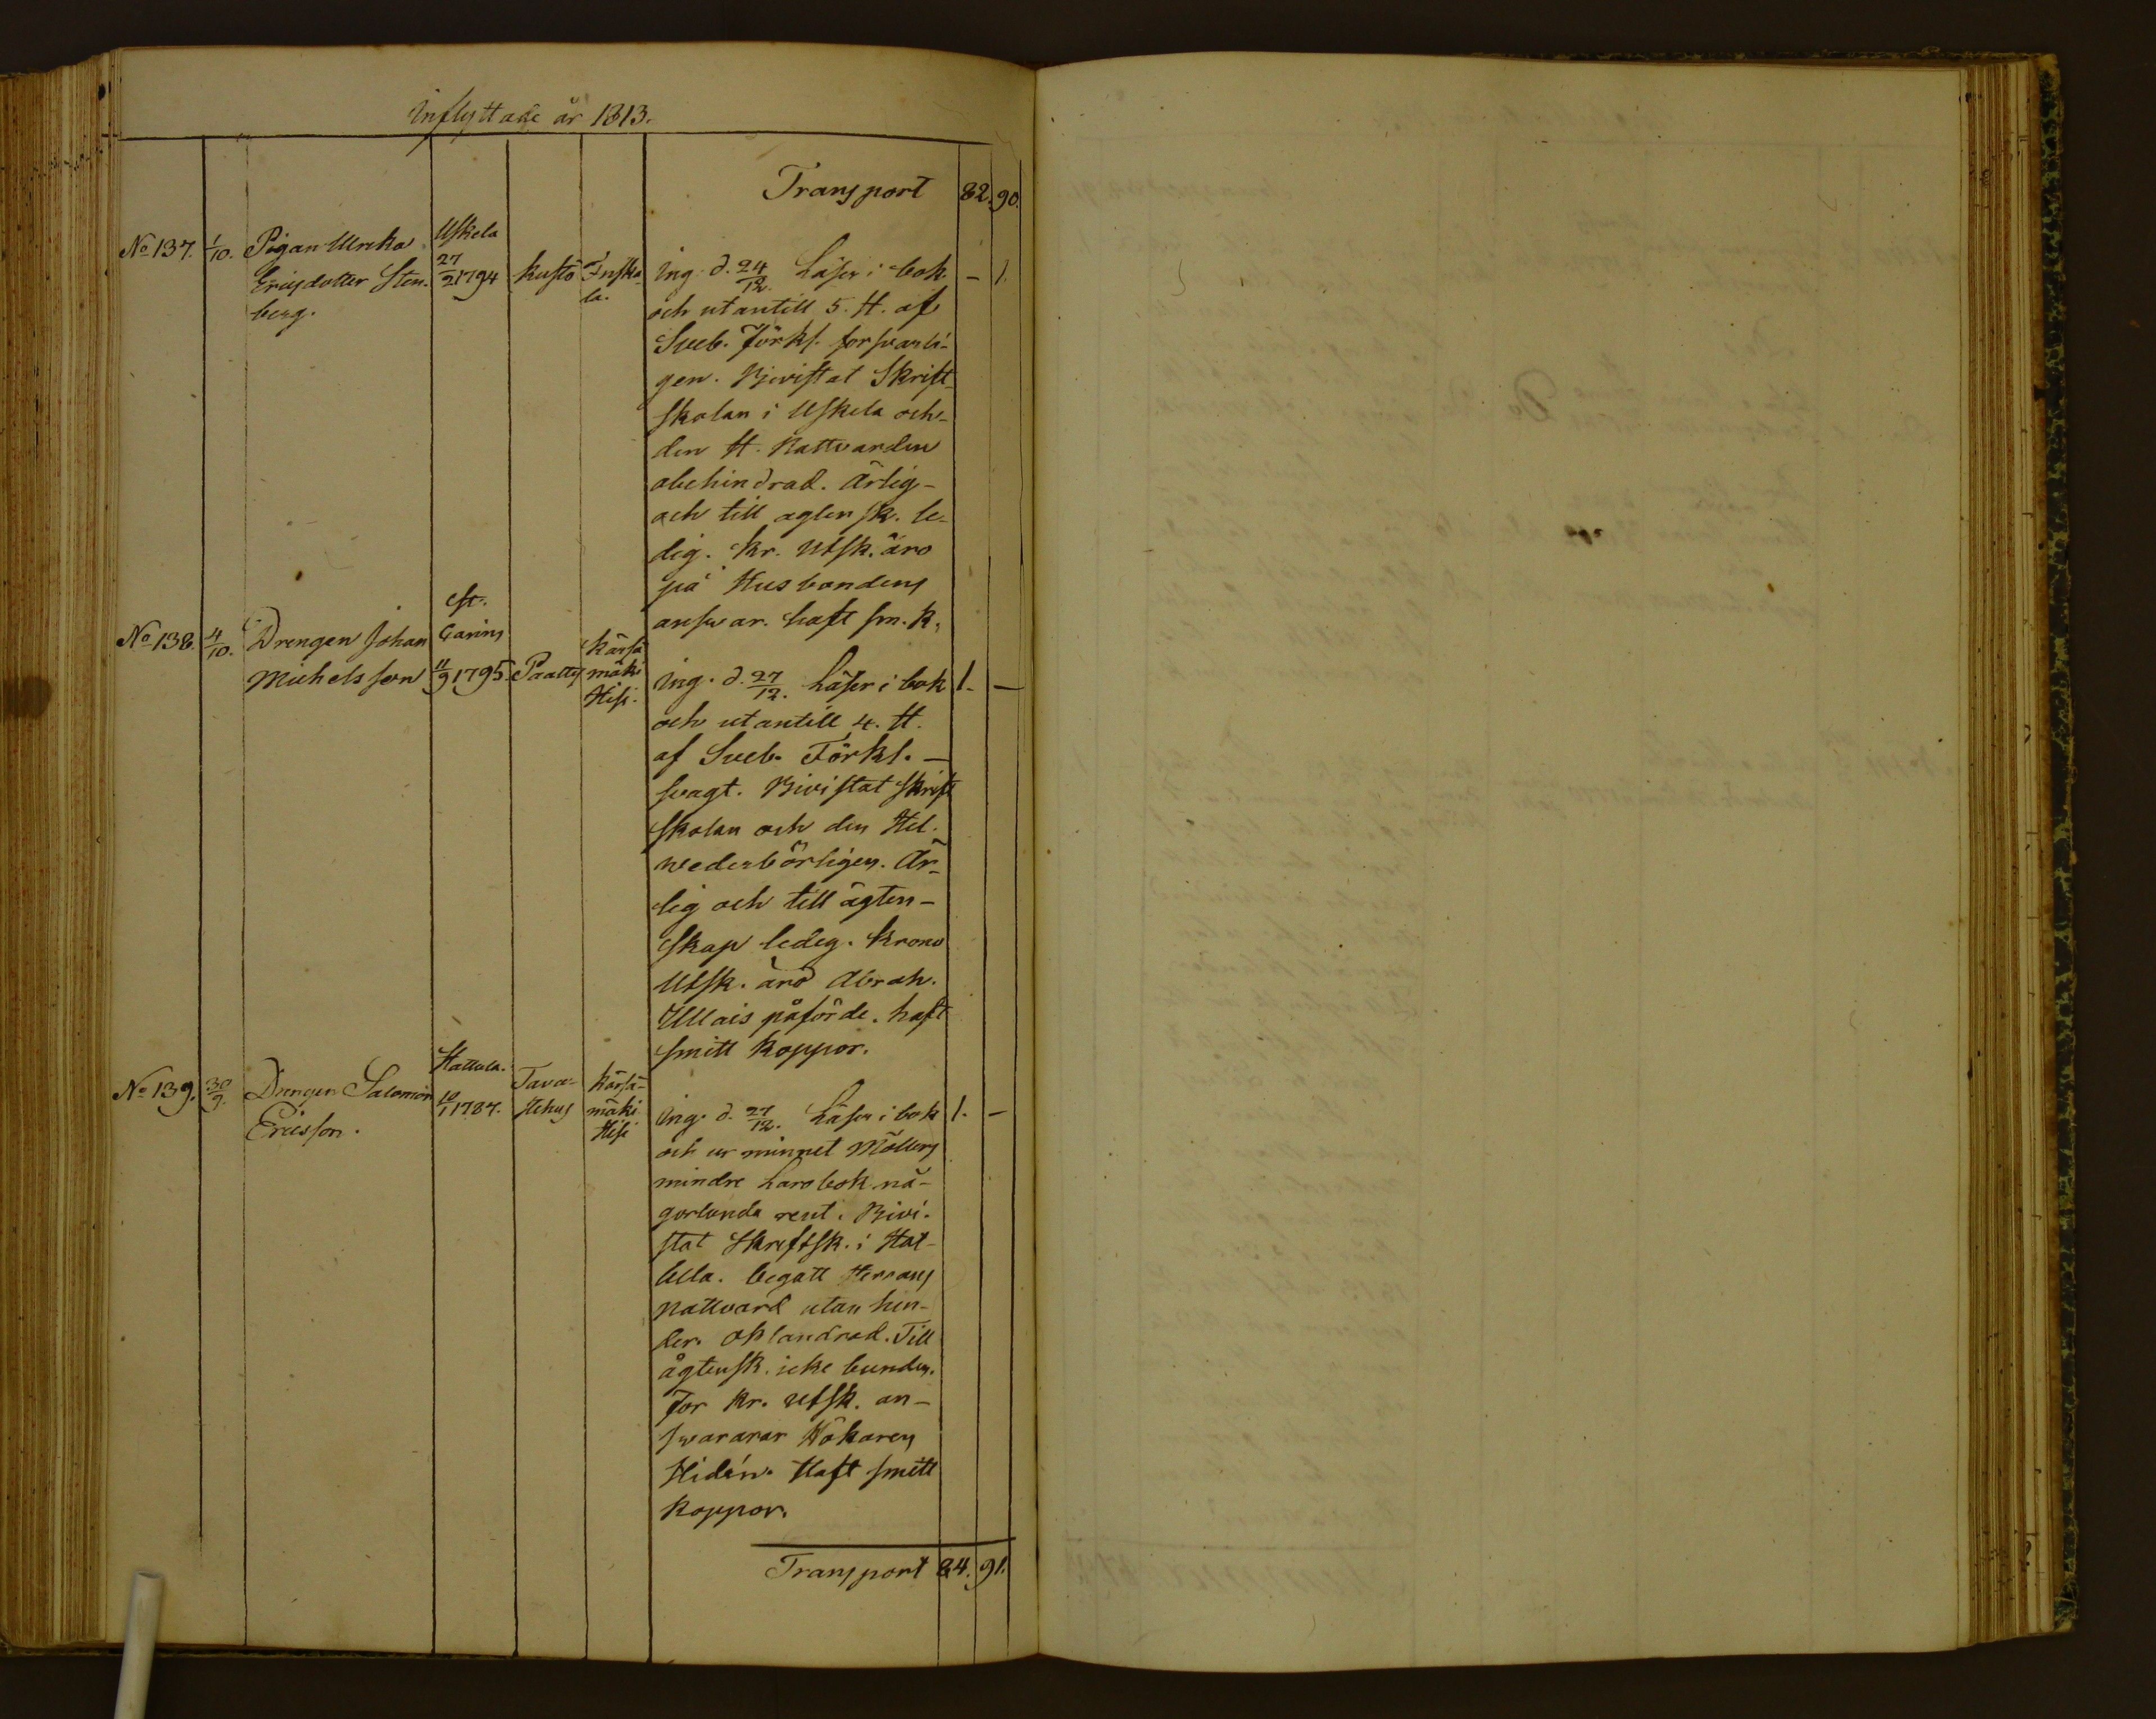 Inflyttade år 1813.
Transport 82. 90.
No 137. 1/10. Pigan Ulrika Ericsdotter Stenberg. Uskela 27/2 1794 Kustö Inskala.
ing. d. 24/12. Läser i bok - 1.
och utantill 5. H. af
Sveb. Förkl. forsvarli-
gen. Bivistat Skrift-
skolan i Uskela och
den H. Nattvarden
obehindrad. Ärlig-
och till agtensk. le-
dig. Kr. Utsk. äro
på Husbondens
answar. haft sm. k.
No 138. 4/10. Drengen Johan Michelsson St. Carins 11/9 1795. Paattis Kärsämäki Hisi.
ing. d. 27/12. Läser i bok 1. -
och utantill 4. H.
af Sveb. Förkl. -
svagt. Bivistat Skrift
skolan och den Hel.
wederbörligen. Är-
lig och till ägten-
skap ledig. Krono
Utsk. äro Abrah.
Ullais påförde. haft
smitt koppor.
No 139. 30/9. Drengen Salomon Ericsson. Hattula. 10/1 1787. Tavastehus Kärsämäki Hisi
ing. d. 27/12. Läser i bok 1. -
och ur minnet Möllers
mindre Larobok nå-
gorlunda rent. Bivi-
stat Skriftsk. i Hat-
tula. begått Herrans
nattvard utan hin-
der. Oklandrad. Till
ägtensk. icke bunden.
For Kr. Utsk. an-
svararar Hökaren
Hidén. Haft smitt
koppor.
Transport 84. 91.